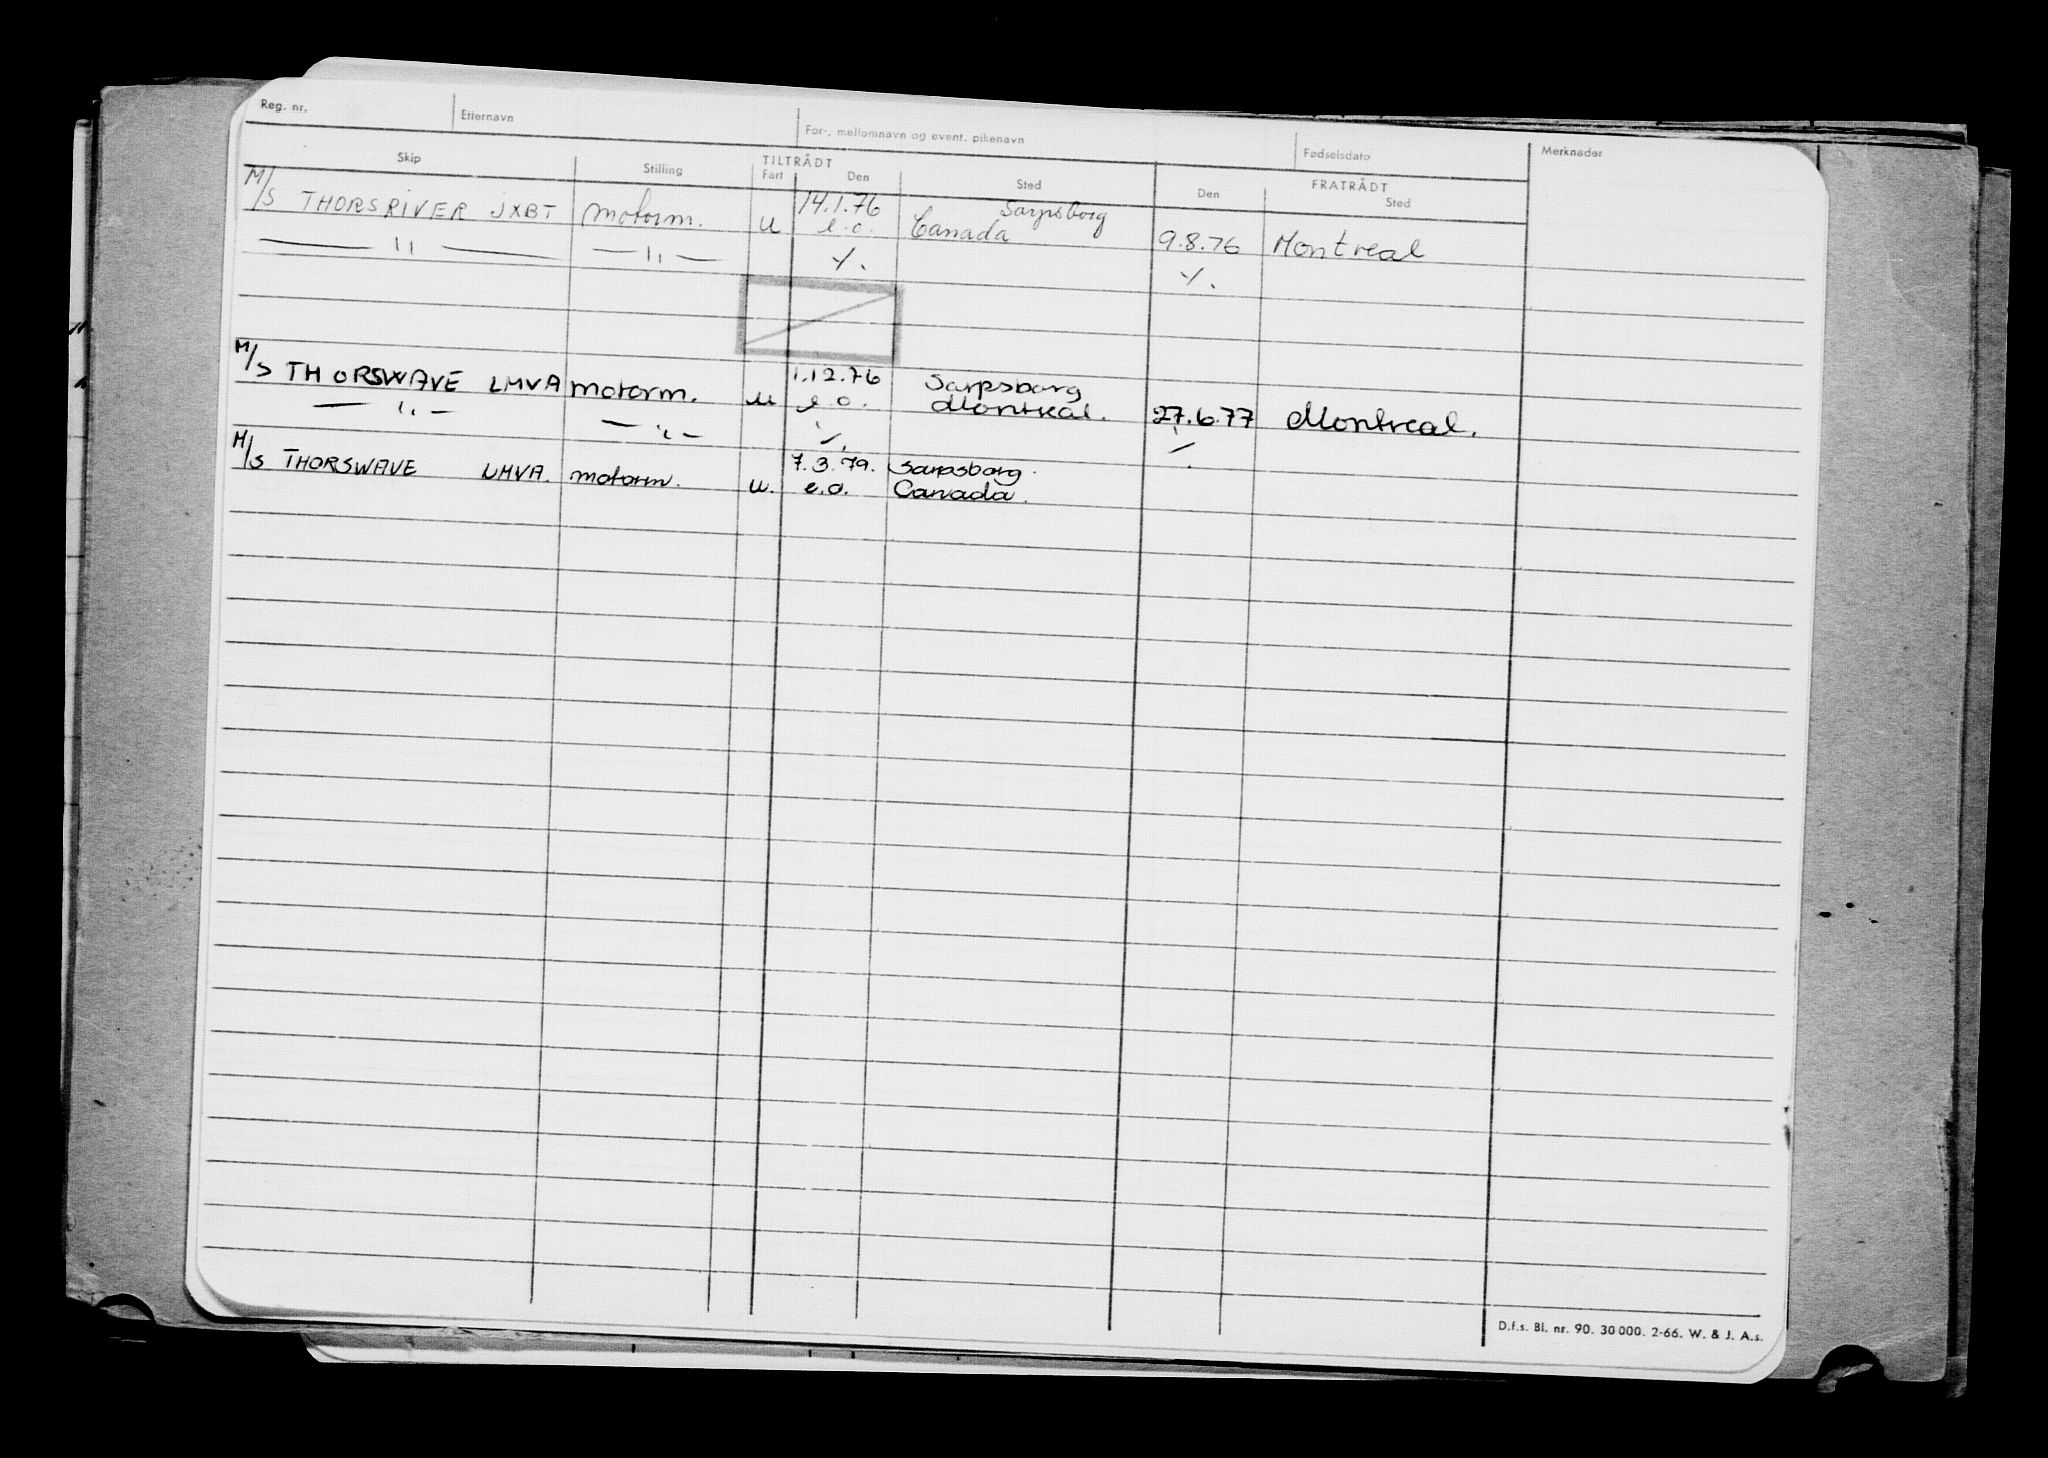 Reg. nr. Etternavn For-, mellomnavn og event. pikenavn Fødselsdato Merknader
Skip Stilling TILTRÅDT FRATRÅDT
Fart Den Sted Den Sted
M/S THORSRIVER JXBT motorm. u 14.1.76 Sarpsborg
e.o. Canada 9.8.76 Montreal
— " — — " — ./. ./.
M/S THORSWAVE LMVA motorm. u 1.12.76 Sarpsborg
— " — e.o. Montreal. 27.6.77 Montreal.
— " — ./. ./.
M/S THORSWAVE LMVA. motorm. u. 7.3.79. Sarpsborg.
e.o. Canada.
D.f.s. Bl. nr. 90. 30 000. 2-66. W. & J. A.s.